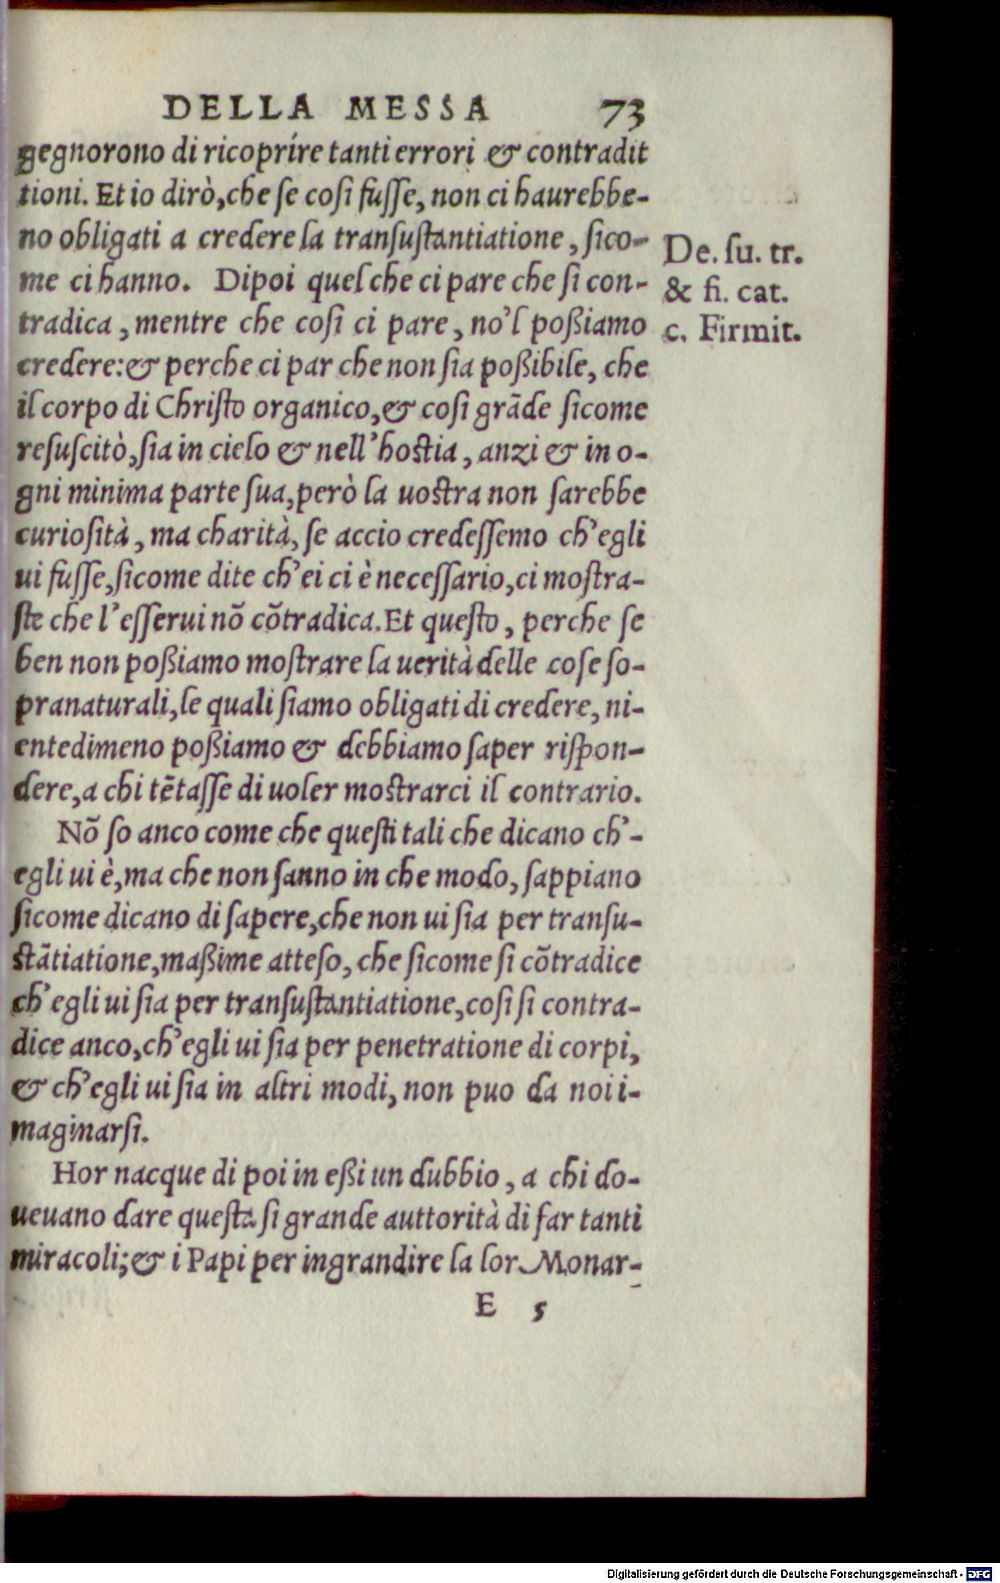 DELLA MESSA 73
gegnorono di ricoprire tanti errori & contradit
tioni. Et io dirò, che se cosi fusse, non ci haurebbe-
no obligati a credere la transustantiatione, sico-
me ci hanno. Dipoi quel che ci pare che si con-
tradica, mentre che cosi ci pare, no'l poßiamo
credere: & perche ci par che non sia poßibile, che
il corpo di Christo organico, & cosi grāde sicome
resuscitò, sia in cielo & nell'hostia, anzi & in o-
gni minima parte sua, però la uostra non sarebbe
curiosità, ma charità, se accio credessemo ch'egli
ui fusse, sicome dite ch'ei ci è necessario, ci mostra-
ste che l'esserui nō cōtradica. Et questo, perche se
ben non poßiamo mostrare la uerità delle cose so-
pranaturali, le quali siamo obligati di credere, ni-
entedimeno poßiamo & debbiamo saper rispon-
dere, a chi tētasse di uoler mostrarci il contrario.
Nō so anco come che questi tali che dicano ch'-
egli ui è, ma che non sanno in che modo, sappiano
sicome dicano di sapere, che non ui sia per transu-
stātiatione, maßime atteso, che sicome si cōtradice
ch'egli ui sia per transustantiatione, cosi si contra-
dice anco, ch'egli ui sia per penetratione di corpi,
& ch'egli ui sia in altri modi, non puo da noi i-
maginarsi.
Hor nacque di poi in eßi un dubbio, a chi do-
ueuano dare questa si grande auttorità di far tanti
miracoli; & i Papi per ingrandire la lor Monar-
E 5
De. su. tr.
& fi. cat.
c. Firmit.
Digitalisierung gefördert durch die Deutsche Forschungsgemeinschaft - DFG